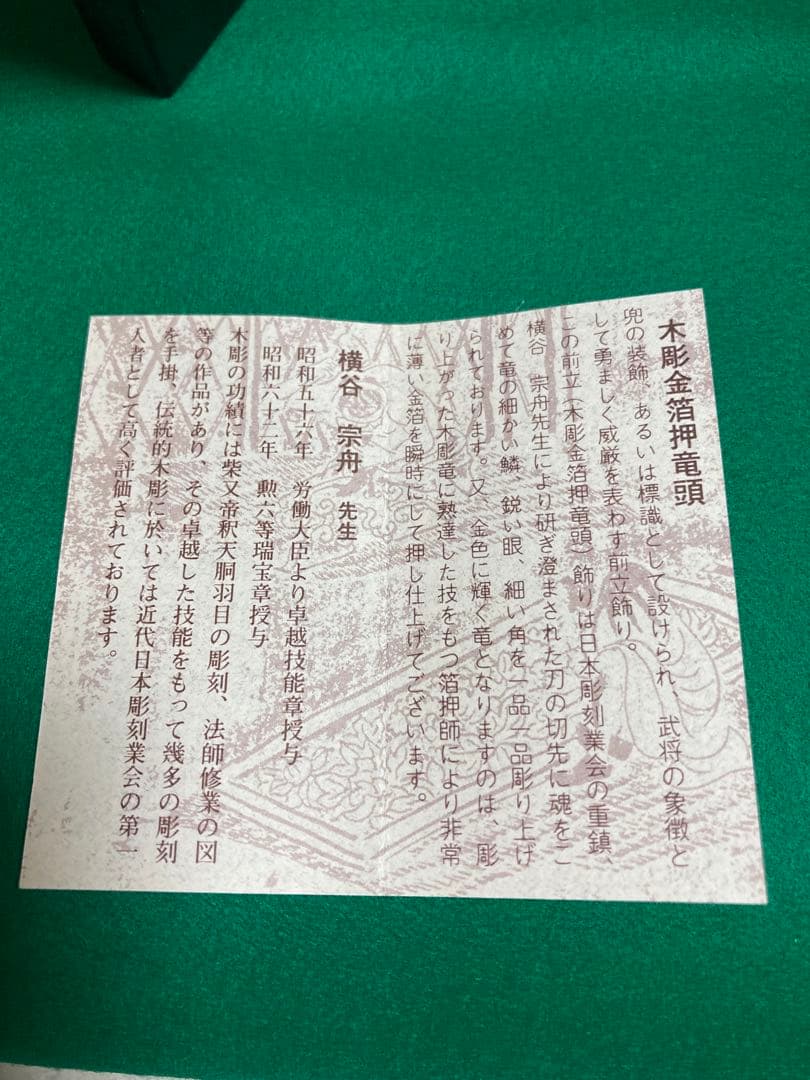 木彫金箔押竜頭
兜の装飾、あるいは標識として設けられ、武将の象徴と
して勇ましく威厳を表わす前立飾り。
この前立(木彫金箔押竜頭)飾りは日本彫刻業会の重鎮、
横谷 宗舟先生により研ぎ澄まされた刀の切先に魂をこ
めて竜の細かい鱗、鋭い眼、細い角を一品一品彫り上げ
られております。又、金色に輝く竜となりますのは、彫
り上がった木彫竜に熟達した技をもつ箔押師により非常
に薄い金箔を瞬時にして押し仕上げてございます。
横谷 宗舟 先生
昭和五十六年 労働大臣より卓越技能章授与
昭和六十二年 勲六等瑞宝章授与
木彫の功績には柴又帝釈天胴羽目の彫刻、法師修業の図
等の作品があり、その卓越した技能をもって幾多の彫刻
を手掛、伝統的木彫に於いては近代日本彫刻業会の第一
人者として高く評価されております。